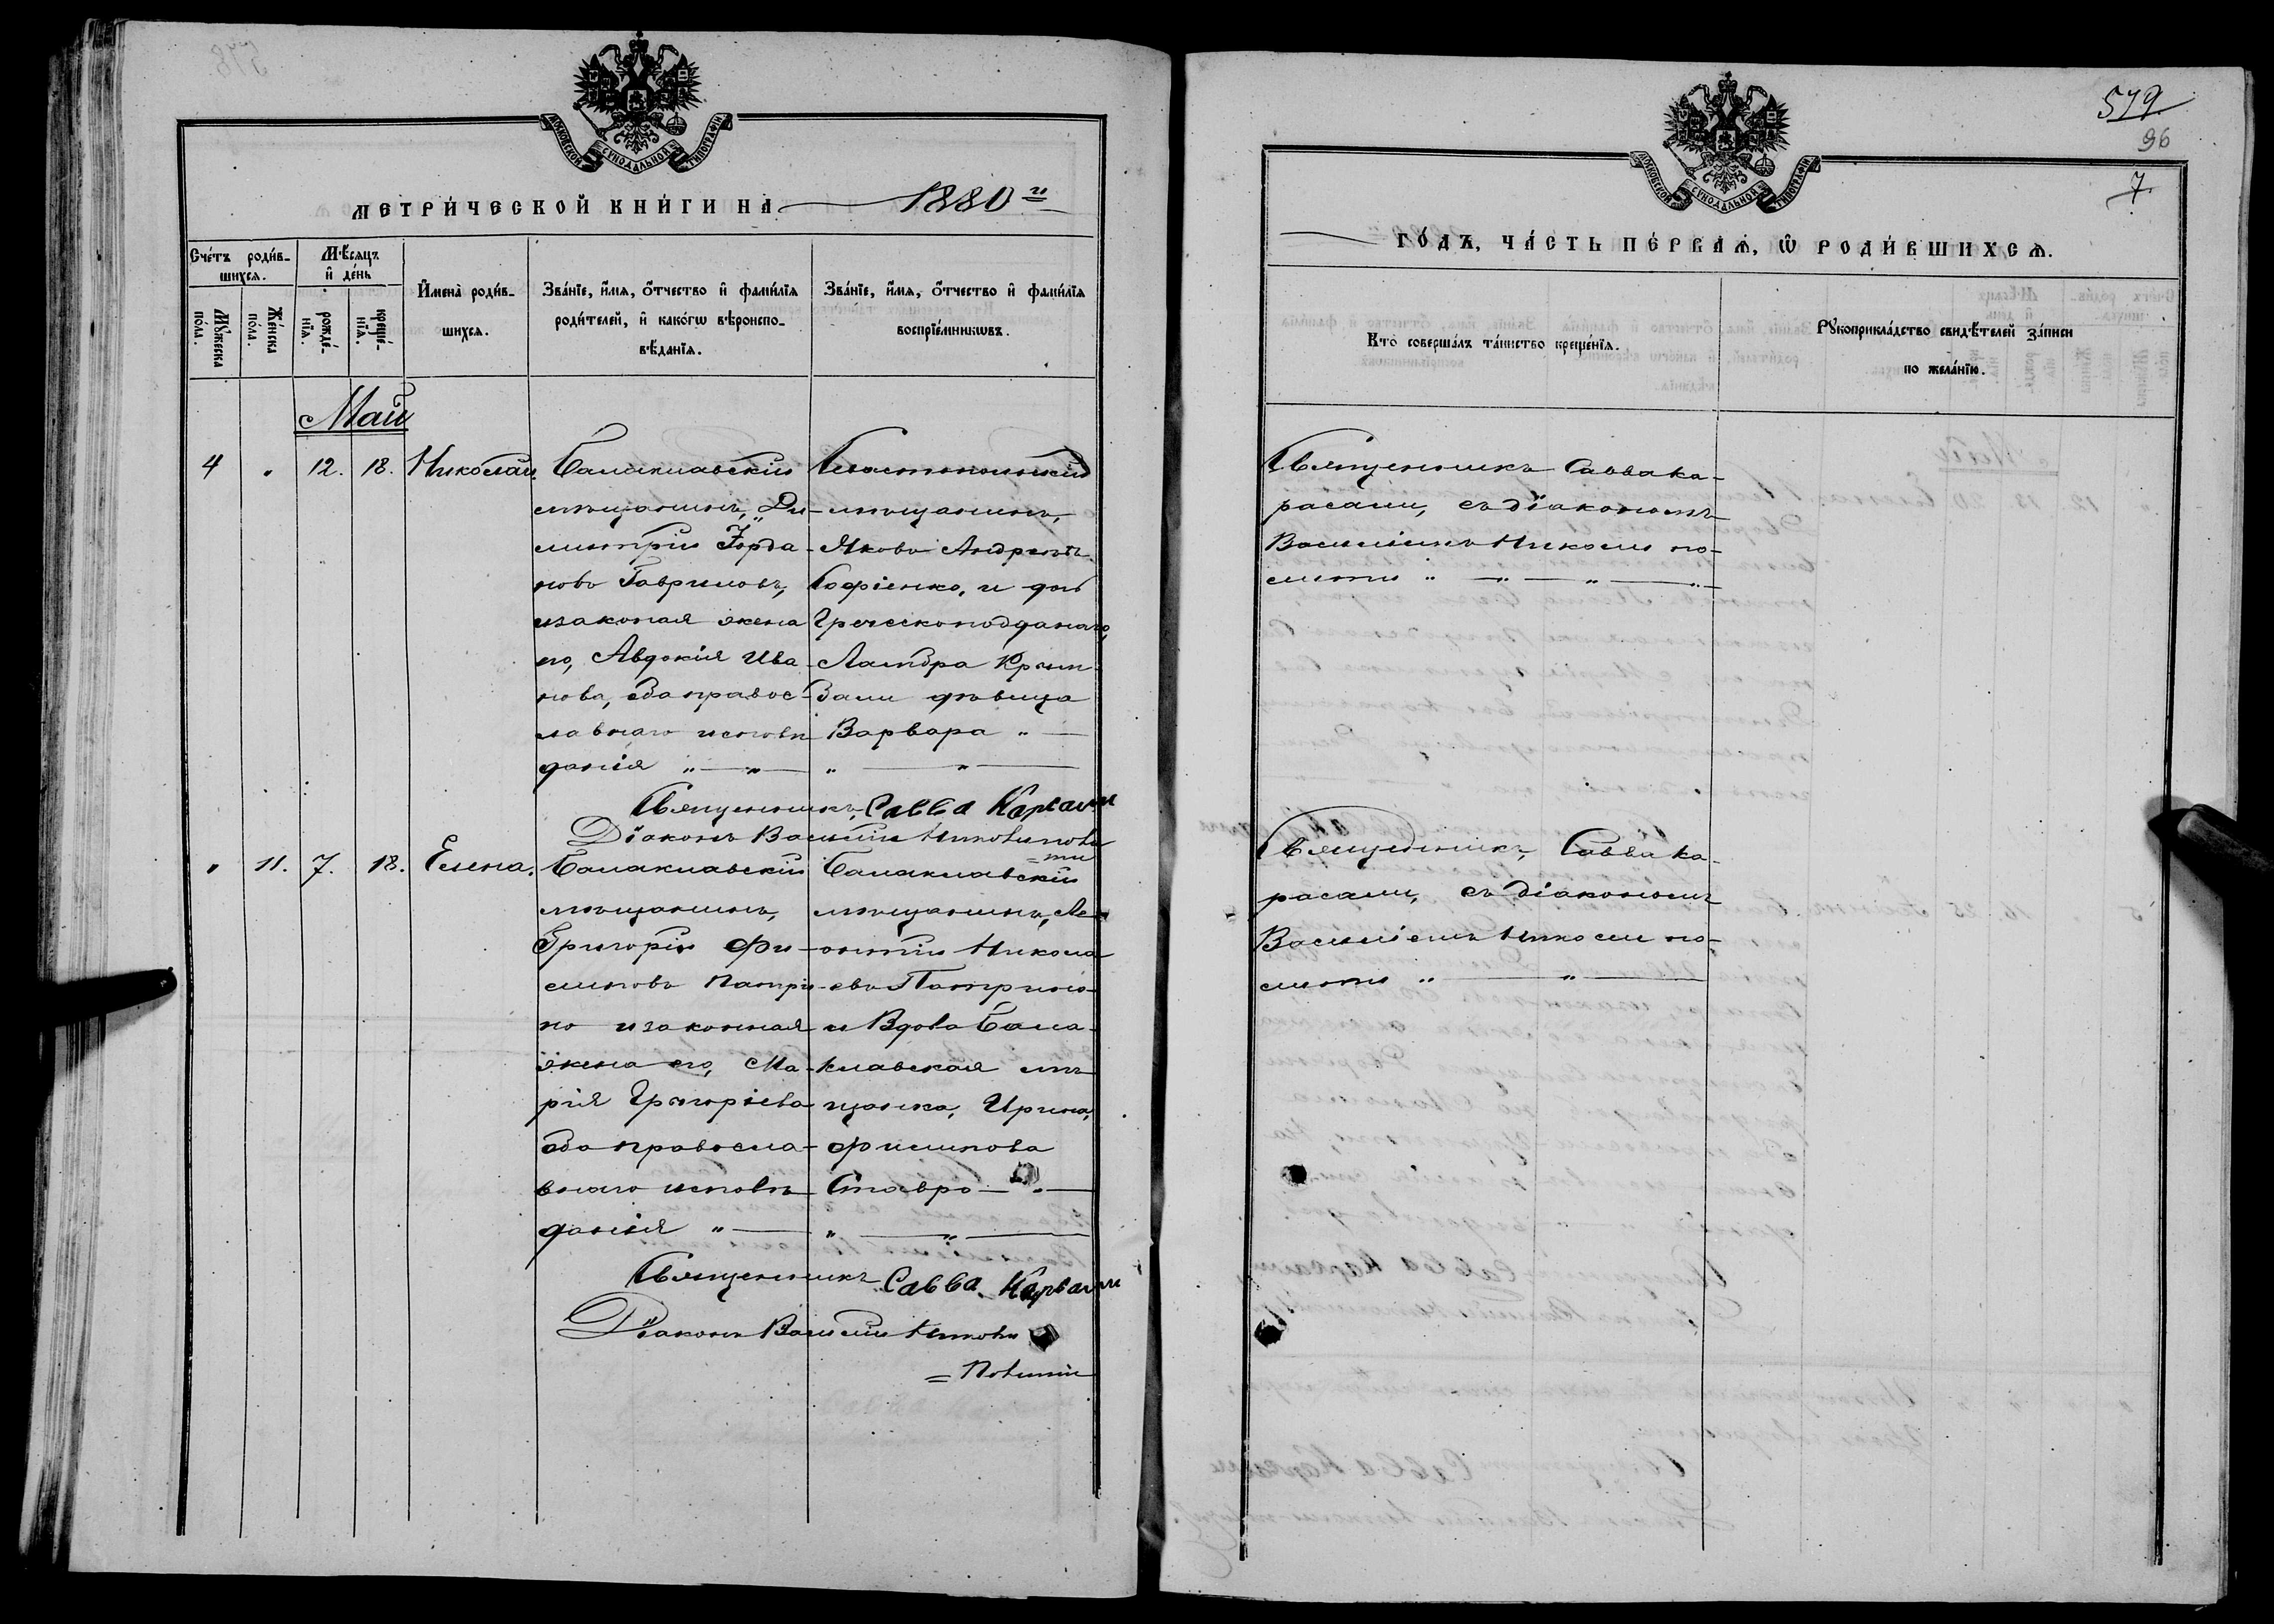 МОСКОВСКОЙ СУНОДАЛЬНОЙ ТИПОГРАФІИ
МЕТРИ́ЧЕСКОЙ КНИ́ГИ НА 1880 й
Сче́тъ роди́в-
шихся.
Мѣ́сяцъ
и҆ де́нь
Мꙋ́жеска
по́ла.
Же́нска
по́ла.
рожде́-
нїѧ.
креще́-
нїѧ.
И҆мена̀ роди́в-
шихся.
Зва́нїе, и҆́мѧ, ѻ҆́тчество и҆ фами́лїѧ
роди́телей, и҆ како́гѡ вѣроиспо-
вѣ́данїѧ.
Зва́нїе, и҆́мѧ, ѻ҆́тчество и҆ фами́лїѧ
воспрїе́мникѡвъ.
Май
4 " 12. 18. Николай.
Балаклавскій
мѣщанинъ, Ди-
митрій Іорда-
новъ Гавриловъ,
изаконая жена
его, Авдокія Ива-
нова, оба правос-
лавнаго исповѣ-
данія " — " —
Севастопольскій
мѣщанинъ,
Яковъ Андреевъ
Софіенко, и дочь
Греческоподанаго,
Варвара " —
" — " —
дѣвица
Священникъ Савва
Діаконъ Василій
" 11. 7. 18. Елена.
Балаклавскій
мѣщанинъ,
Григорій Фи-
липовъ Патри-
но изаконная
жена его, Ма-
рія Григоріева
оба правосла-
внаго исповѣ-
данія " —
Балаклавскій
мѣщанинъ, Ле-
онтій Никола-
евъ Патрино
и Вдова Бала-
клавская мѣ-
щанка, Ирина,
Филипова
Ставро — " —
" — " —
Священникъ Савва
Діаконъ Василій
579
96
7.
МОСКОВСКОЙ СУНОДАЛЬНОЙ ТИПОГРАФІИ
ГО́ДЪ, ЧА́СТЬ ПЕ́РВАѦ, Ѡ҆ РОДИ́ВШИХСѦ.
Кто̀ соверша́лъ та́инство креще́нїѧ.
Рꙋкоприкла́дство свидѣ́телей за́писи
по жела́нїю.
Священникъ Савва Ка-
расали, съ діакономъ
Василіемъ Николи по-
" — " — " —
Священникъ, Савва Ка-
расали, съ діакономъ
Василіемъ Николи по-
" — " —